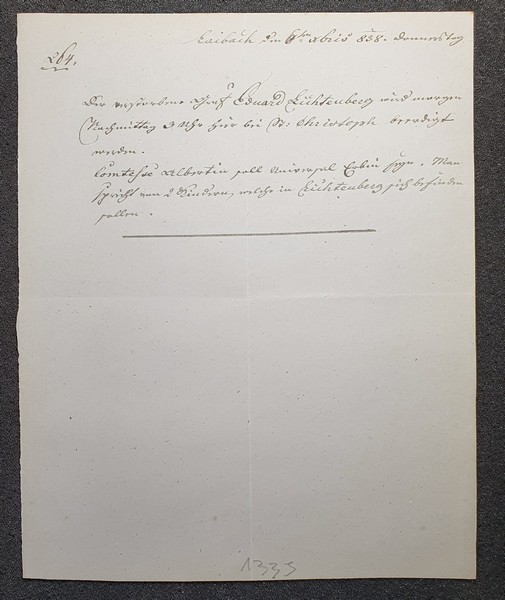 Laibach den 6ten xbris 838. Donnerstag
264.
Der verstorbene Graf Eduard Lichtenberg wird morgen
Nachmittag 3 Uhr hier bei St: Christoph beerdigt
werden.
Comtesse Albertin soll Universal Erbin seyn. Man
spricht von 2 Kindern, welche in Lichtenberg sich befinden
sollen.
1335